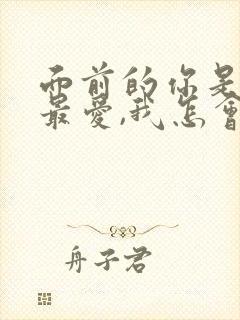 面前的你是
最爱,我怎會
舟子君